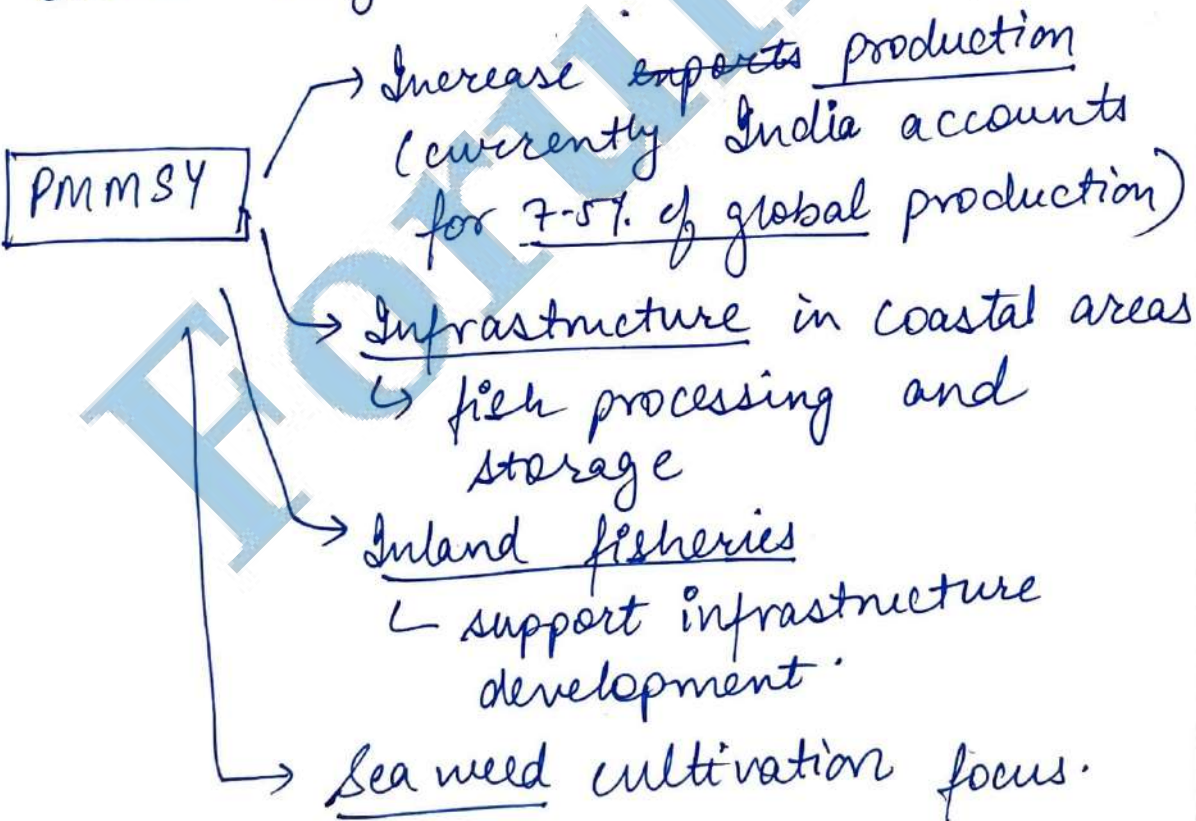 → Increase exports production
PMMSY
(currently India accounts
for 7.5% of global production)
→ Infrastructure in coastal areas
↳ fish processing and
storage
→ Inland fisheries
└ support infrastructure
development.
→ Sea weed cultivation focus.